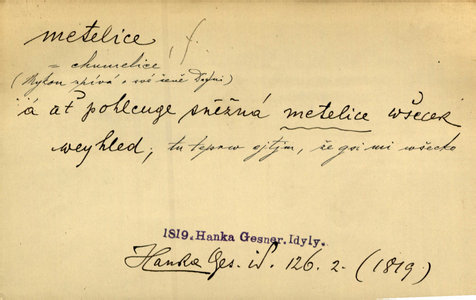 metelice, f.
= chumelice
(Mykon zpívá o své ženě Dafni)
"á ať pohlcuge sněžná metelice wšecek
weyhled, tu teprw ejtjm, že gsi mi wšecko
1819. Hanka Gesner. Idyly.
Hanka Ges. id. 126. 2. (1819)